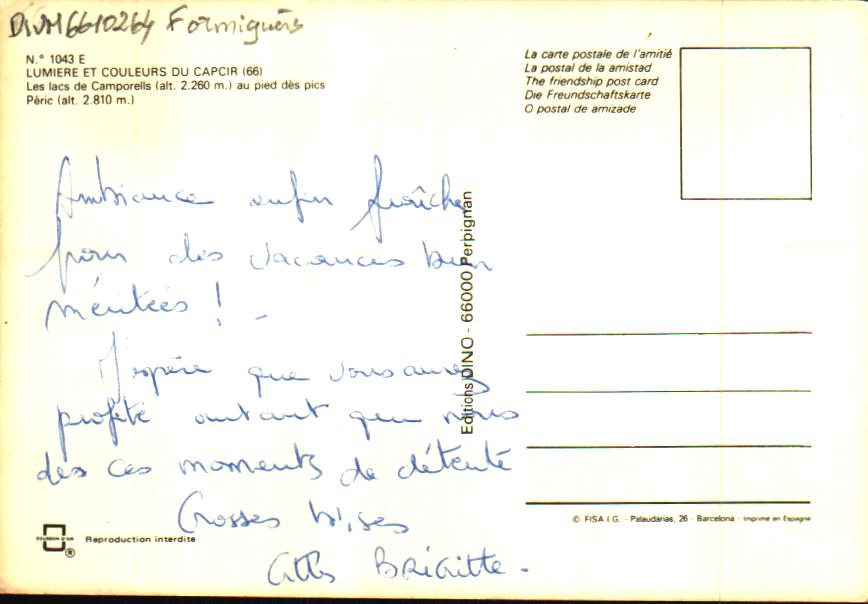 DIVM6610264 Formiguères
N.° 1043 E
LUMIERE ET COULEURS DU CAPCIR (66)
Les lacs de Camporells (alt. 2.260 m.) au pied dès pics
Péric (alt. 2.810 m.)
La carte postale de l'amitié
La postal de la amistad
The friendship post card
Die Freundschaftskarte
O postal de amizade
Ambiance enfin fraîche
pour des vacances bien
méritées ! -
J'espère que vous aurez
profité autant que nous
des ces moments de détente
Grosses bises
Brigitte.
Editions DINO - 66000 Perpignan
© FISA I.G. - Palaudarias, 26 - Barcelona - Imprimé en Espagne
ESCUDO D'OR
®
Reproduction interdite